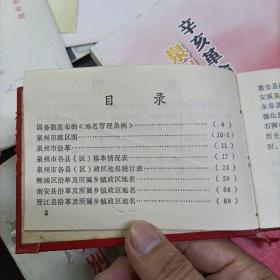 辛亥革命
泉
目录
国务院发布的《地名管理条例》……………(4)
泉州市政区图……………(10-1)
泉州市沿革……………(11)
泉州市各县(区)基本情况表……………(17)
泉州市各县(区)政区地名统计表……………(23)
鲤城区沿革及所属乡镇政区地名……………(29)
南安县沿革及所属乡镇政区地名……………(54)
晋江县沿革及所属乡镇政区地名……………(89)
惠安县
安溪县
永春县
德化县
石狮
附录